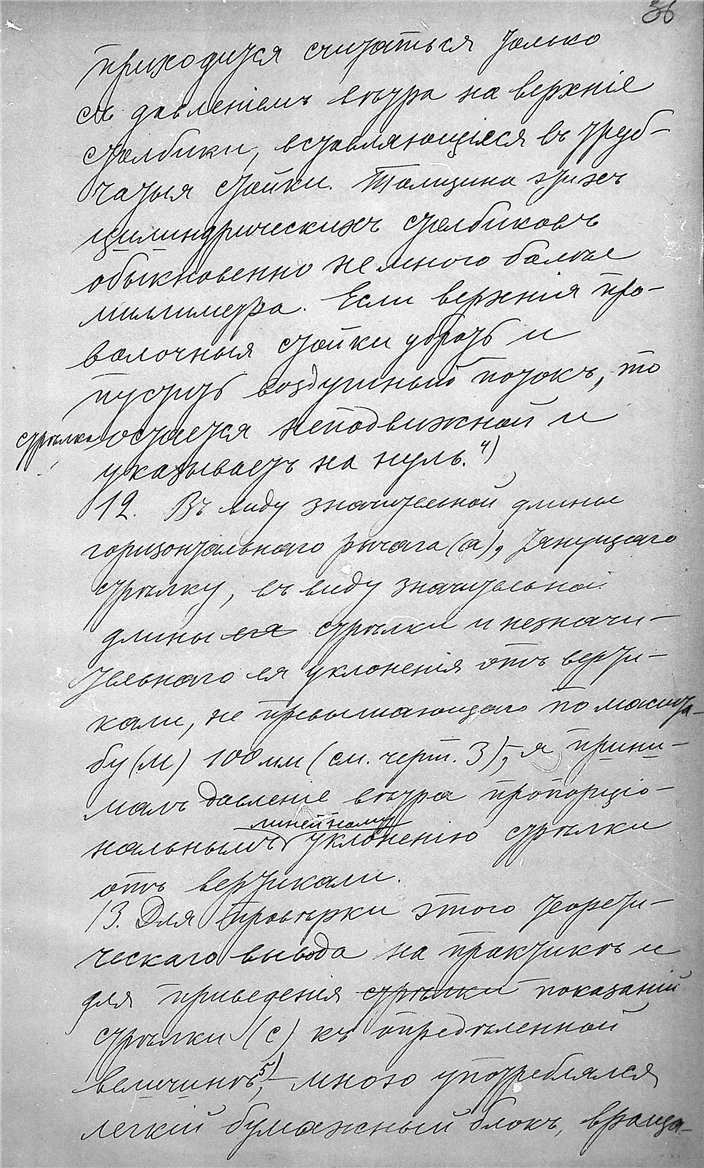 36
приходится считаться только
съ давленіемъ вѣтра на верхніе
столбики, вставляющіеся въ труб-
чатыя стойки. Толщина этихъ
цилиндрическихъ столбиковъ
обыкновенно немного болѣе
миллиметра. Если верхнія про-
волочныя стойки убрать и
пустить воздушный потокъ, то
стрѣлка остается неподвижной и
указываетъ на нуль.⁴)
12. Въ виду значительной длины
горизонтальнаго рычага (а), тянущаго
стрѣлку, въ виду значительной
длины ея стрѣлки и незначи-
тельнаго ея уклоненія отъ верти-
кали, не превышающаго по масшта-
бу (м) 100 мм (см. черт. 3), – я прини-
малъ давленіе вѣтра пропорціо-
линейному
нальнымъ уклоненію стрѣлки
отъ вертикали.
13. Для провѣрки этого теорети-
ческаго вывода на практикѣ и
для приведенія стрѣлки показаній
стрѣлки (с) къ опредѣленной
величинѣ⁵), – мною употреблялся
легкій бумажный блокъ, враща-